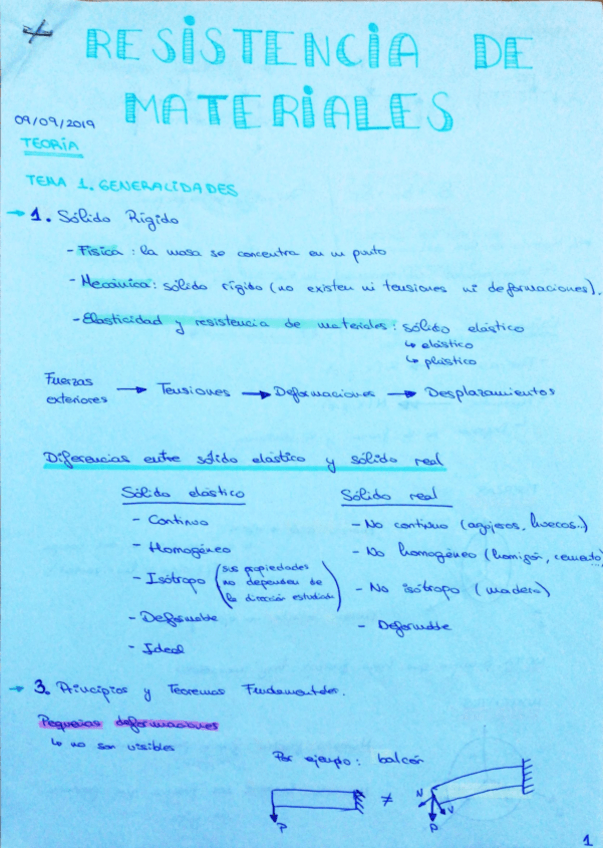 RESISTENCIA DE
MATERIALES
09/09/2019
TEORÍA
TEMA 1. GENERALIDADES
→ 1. Sólido Rígido
- Física: la masa se concentra en un punto
- Mecánica: sólido rígido (no existen ni tensiones ni deformaciones).
- Elasticidad y resistencia de materiales: sólido elástico
↳ elástico
↳ plástico
Fuerzas exteriores → Tensiones → Deformaciones → Desplazamientos
Diferencias entre sólido elástico y sólido real
Sólido elástico
- Continuo
- Homogéneo
- Isótropo (sus propiedades
no dependen de
la dirección estudiada)
- Deformable
- Ideal
Sólido real
- No continuo (agujeros, huecos..)
- No homogéneo (hormigón, cemento)
- No isótropo (madera)
- Deformable
→ 3. Principios y Teoremas Fundamentales.
Pequeñas deformaciones
↳ no son visibles
Por ejemplo: balcón
P
≠
N
V
P
1